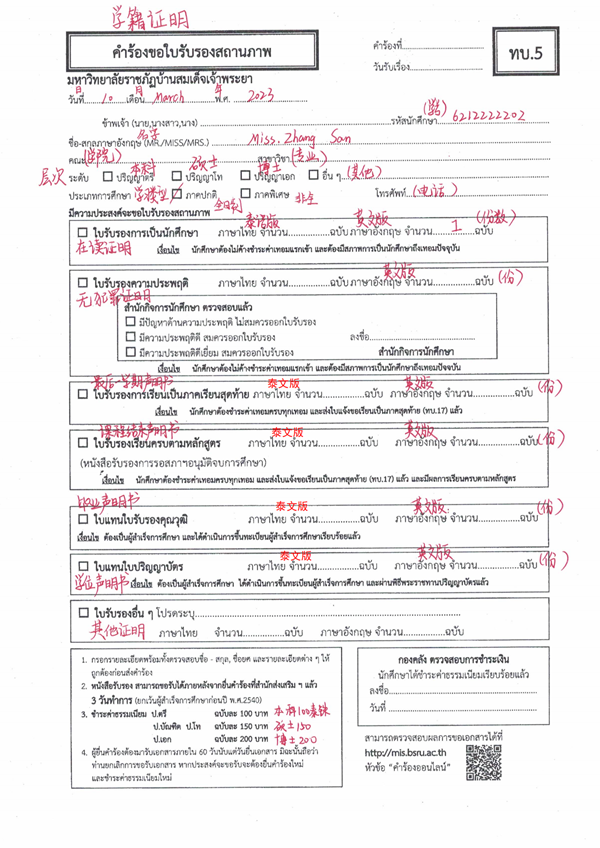 学籍证明
คำร้องขอใบรับรองสถานภาพ
คำร้องที่....................
วันรับเรื่อง....................
ทบ.5
มหาวิทยาลัยราชภัฏบ้านสมเด็จเจ้าพระยา
日 月 年
วันที่ 10 เดือน March พ.ศ. 2023
ข้าพเจ้า (นาย,นางสาว,นาง) .................... รหัสนักศึกษา (学号) 6212222202
ชื่อ-สกุลภาษาอังกฤษ (MR./MISS/MRS.) 名字 Miss. Zhang San
คณะ (学院) สาขาวิชา (专业)
层次 ระดับ ☐ ปริญญาตรี 本科 ☐ ปริญญาโท 硕士 ☐ ปริญญาเอก 博士 ☐ อื่น ๆ (其他)
ประเภทการศึกษา 学制类型 ☐ ภาคปกติ 全日制 ☐ ภาคพิเศษ 非全 โทรศัพท์ (电话)
มีความประสงค์จะขอใบรับรองสถานภาพ
泰语版 英文版 (份数)
☐ ใบรับรองการเป็นนักศึกษา ภาษาไทย จำนวน............ฉบับ ภาษาอังกฤษ จำนวน 1 ฉบับ
在读证明 เงื่อนไข นักศึกษาต้องไม่ค้างชำระค่าเทอมแรกเข้า และต้องมีสภาพการเป็นนักศึกษาถึงเทอมปัจจุบัน
英文版
☐ ใบรับรองความประพฤติ ภาษาไทย จำนวน............ฉบับ ภาษาอังกฤษ จำนวน............ฉบับ (份)
无犯罪证明
สำนักกิจการนักศึกษา ตรวจสอบแล้ว
☐ มีปัญหาด้านความประพฤติ ไม่สมควรออกใบรับรอง
☐ มีความประพฤติดี สมควรออกใบรับรอง ลงชื่อ....................
☐ มีความประพฤติดีเยี่ยม สมควรออกใบรับรอง สำนักกิจการนักศึกษา
เงื่อนไข นักศึกษาต้องไม่ค้างชำระค่าเทอมแรกเข้า และต้องมีสภาพการเป็นนักศึกษาถึงเทอมปัจจุบัน
最后一学期声明书 泰文版 英文版
☐ ใบรับรองการเรียนเป็นภาคเรียนสุดท้าย ภาษาไทย จำนวน............ฉบับ ภาษาอังกฤษ จำนวน............ฉบับ (份)
เงื่อนไข นักศึกษาต้องชำระค่าเทอมครบทุกเทอม และส่งใบแจ้งขอเรียนเป็นภาคสุดท้าย (ทบ.17) แล้ว
课程结束声明书 泰文版 英文版
☐ ใบรับรองเรียนครบตามหลักสูตร ภาษาไทย จำนวน............ฉบับ ภาษาอังกฤษ จำนวน............ฉบับ (份)
(หนังสือรับรองการรอสภาฯอนุมัติจบการศึกษา)
เงื่อนไข นักศึกษาต้องชำระค่าเทอมครบทุกเทอม และส่งใบแจ้งขอเรียนเป็นภาคสุดท้าย (ทบ.17) แล้ว และมีผลการเรียนครบตามหลักสูตร
毕业声明书 泰文版 英文版
☐ ใบแทนใบรับรองคุณวุฒิ ภาษาไทย จำนวน............ฉบับ ภาษาอังกฤษ จำนวน............ฉบับ (份)
เงื่อนไข ต้องเป็นผู้สำเร็จการศึกษา และได้ดำเนินการขึ้นทะเบียนผู้สำเร็จการศึกษาเรียบร้อยแล้ว
泰文版 英文版
☐ ใบแทนใบปริญญาบัตร ภาษาไทย จำนวน............ฉบับ ภาษาอังกฤษ จำนวน............ฉบับ (份)
学位声明书 เงื่อนไข ต้องเป็นผู้สำเร็จการศึกษา ได้ดำเนินการขึ้นทะเบียนผู้สำเร็จการศึกษา และผ่านพิธีพระราชทานปริญญาบัตรแล้ว
☐ ใบรับรองอื่น ๆ โปรดระบุ....................
其他证明 ภาษาไทย จำนวน............ฉบับ ภาษาอังกฤษ จำนวน............ฉบับ
1. กรอกรายละเอียดพร้อมทั้งตรวจสอบชื่อ - สกุล, ชื่อยศ และรายละเอียดต่าง ๆ ให้
ถูกต้องก่อนส่งคำร้อง
2. หนังสือรับรอง สามารถขอรับได้ภายหลังจากยื่นคำร้องที่สำนักส่งเสริม ฯ แล้ว
3 วันทำการ (ยกเว้นผู้สำเร็จการศึกษาก่อนปี พ.ศ.2540)
3. ค่าธรรมเนียม ป.ตรี ฉบับละ 100 บาท 本科100泰铢
ป.บัณฑิต ป.โท ฉบับละ 150 บาท 硕士150
ป.เอก ฉบับละ 200 บาท 博士200
4. ผู้ยื่นคำร้องต้องมารับเอกสารภายใน 60 วันนับแต่วันยื่นเอกสาร มิฉะนั้นถือว่า
ท่านยกเลิกการขอรับเอกสาร หากประสงค์จะขอรับจะต้องยื่นคำร้องใหม่
และชำระค่าธรรมเนียมใหม่
กองคลัง ตรวจสอบการชำระเงิน
นักศึกษาได้ชำระค่าธรรมเนียมเรียบร้อยแล้ว
ลงชื่อ....................
วันที่ ....................
สามารถตรวจสอบผลการขอเอกสารได้ที่
http://mis.bsru.ac.th
หัวข้อ "คำร้องออนไลน์"